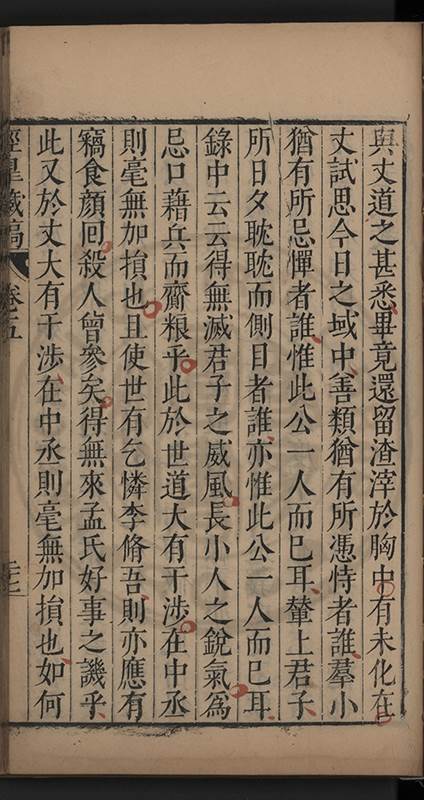 與丈道之甚悉畢竟還留渣滓於胸中有未化在
丈試思今日之域中善類猶有所憑恃者誰羣小
猶有所忌憚者誰惟此公一人而已耳輦上君子
所日夕耽耽而側目者誰亦惟此公一人而已耳
錄中云云得無滅君子之威風長小人之銳氣為
忌口藉兵而齎粮乎此於世道大有干涉在中丞
則毫無加損也且使世有乞憐李脩吾則亦應有
竊食顔回殺人曾參矣得無來孟氏好事之譏乎
此又於丈大有干涉在中丞則毫無加損也如何
涇臯藏稿
卷五